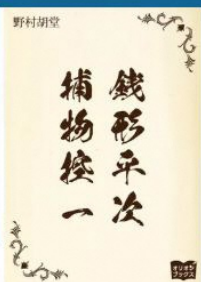 野村胡堂
銭形平次
捕物控一
オリオン
ブックス